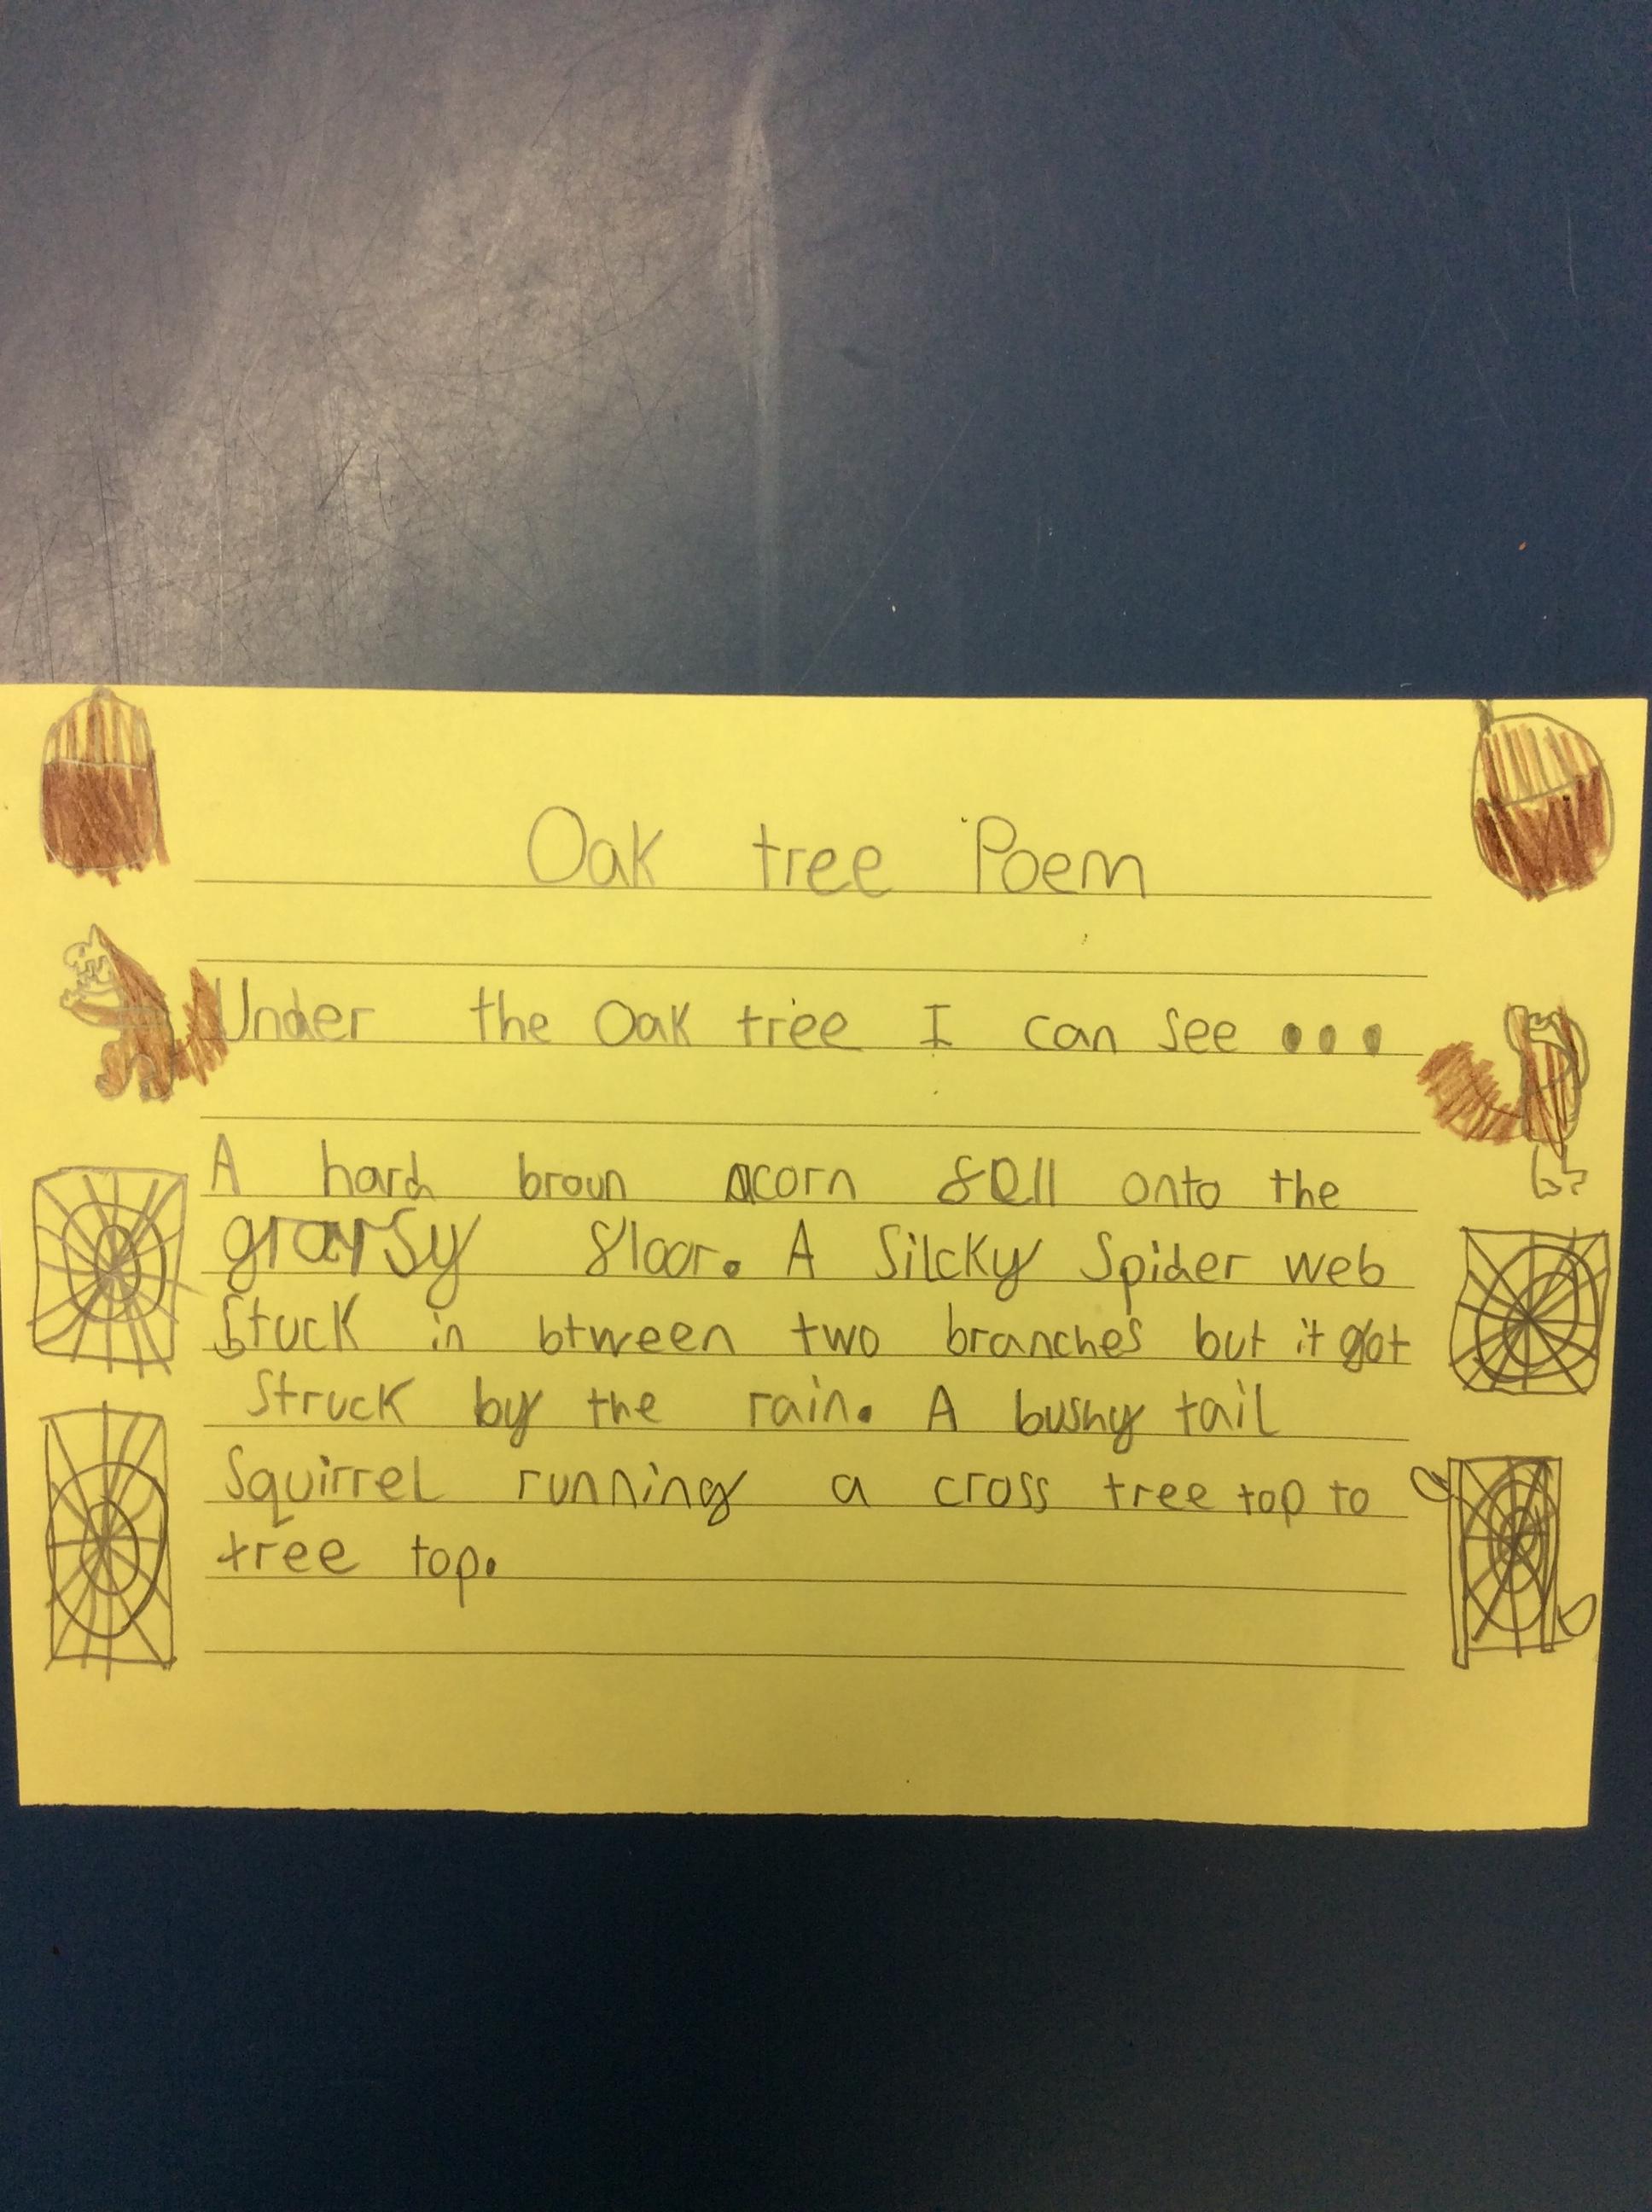 Oak tree Poem
Under the Oak tree I can see ...
A hard broun acorn fell onto the
grarsy floor. A Silcky Spider web
Stuck in btween two branches but it got
Struck by the rain. A bushy tail
Squirrel running a cross tree top to
tree top.